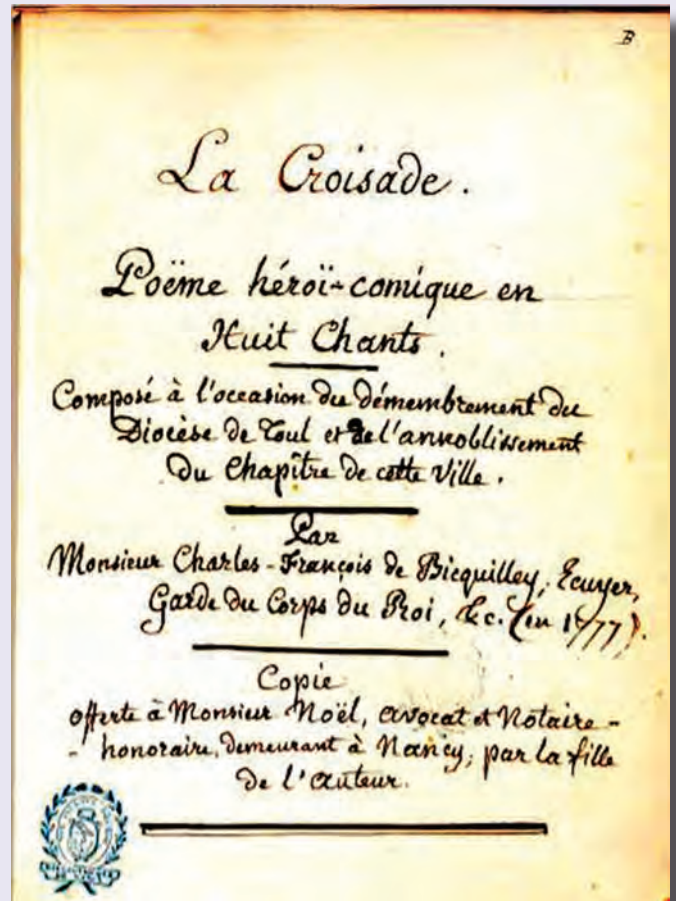 B
La Croisade.
Poëme héroï-comique en
Huit Chants.
Composé à l'occasion du démembrement du
Diocèse de Toul et de l'annoblissement
du Chapitre de cette Ville.
Par
Monsieur Charles-François de Bicquilley, Ecuyer,
Garde du Corps du Roi, &c. (en 1777).
Copie
offerte à Monsieur Noël, avocat et Notaire-
- honoraire, demeurant à Nancy, par la fille
de l'auteur.